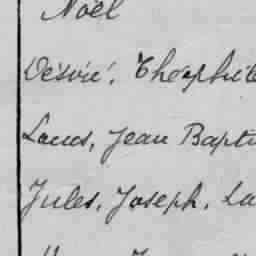 Noël
Désiré, Théophile
Louis, Jean Bapti
Jules, Joseph, La